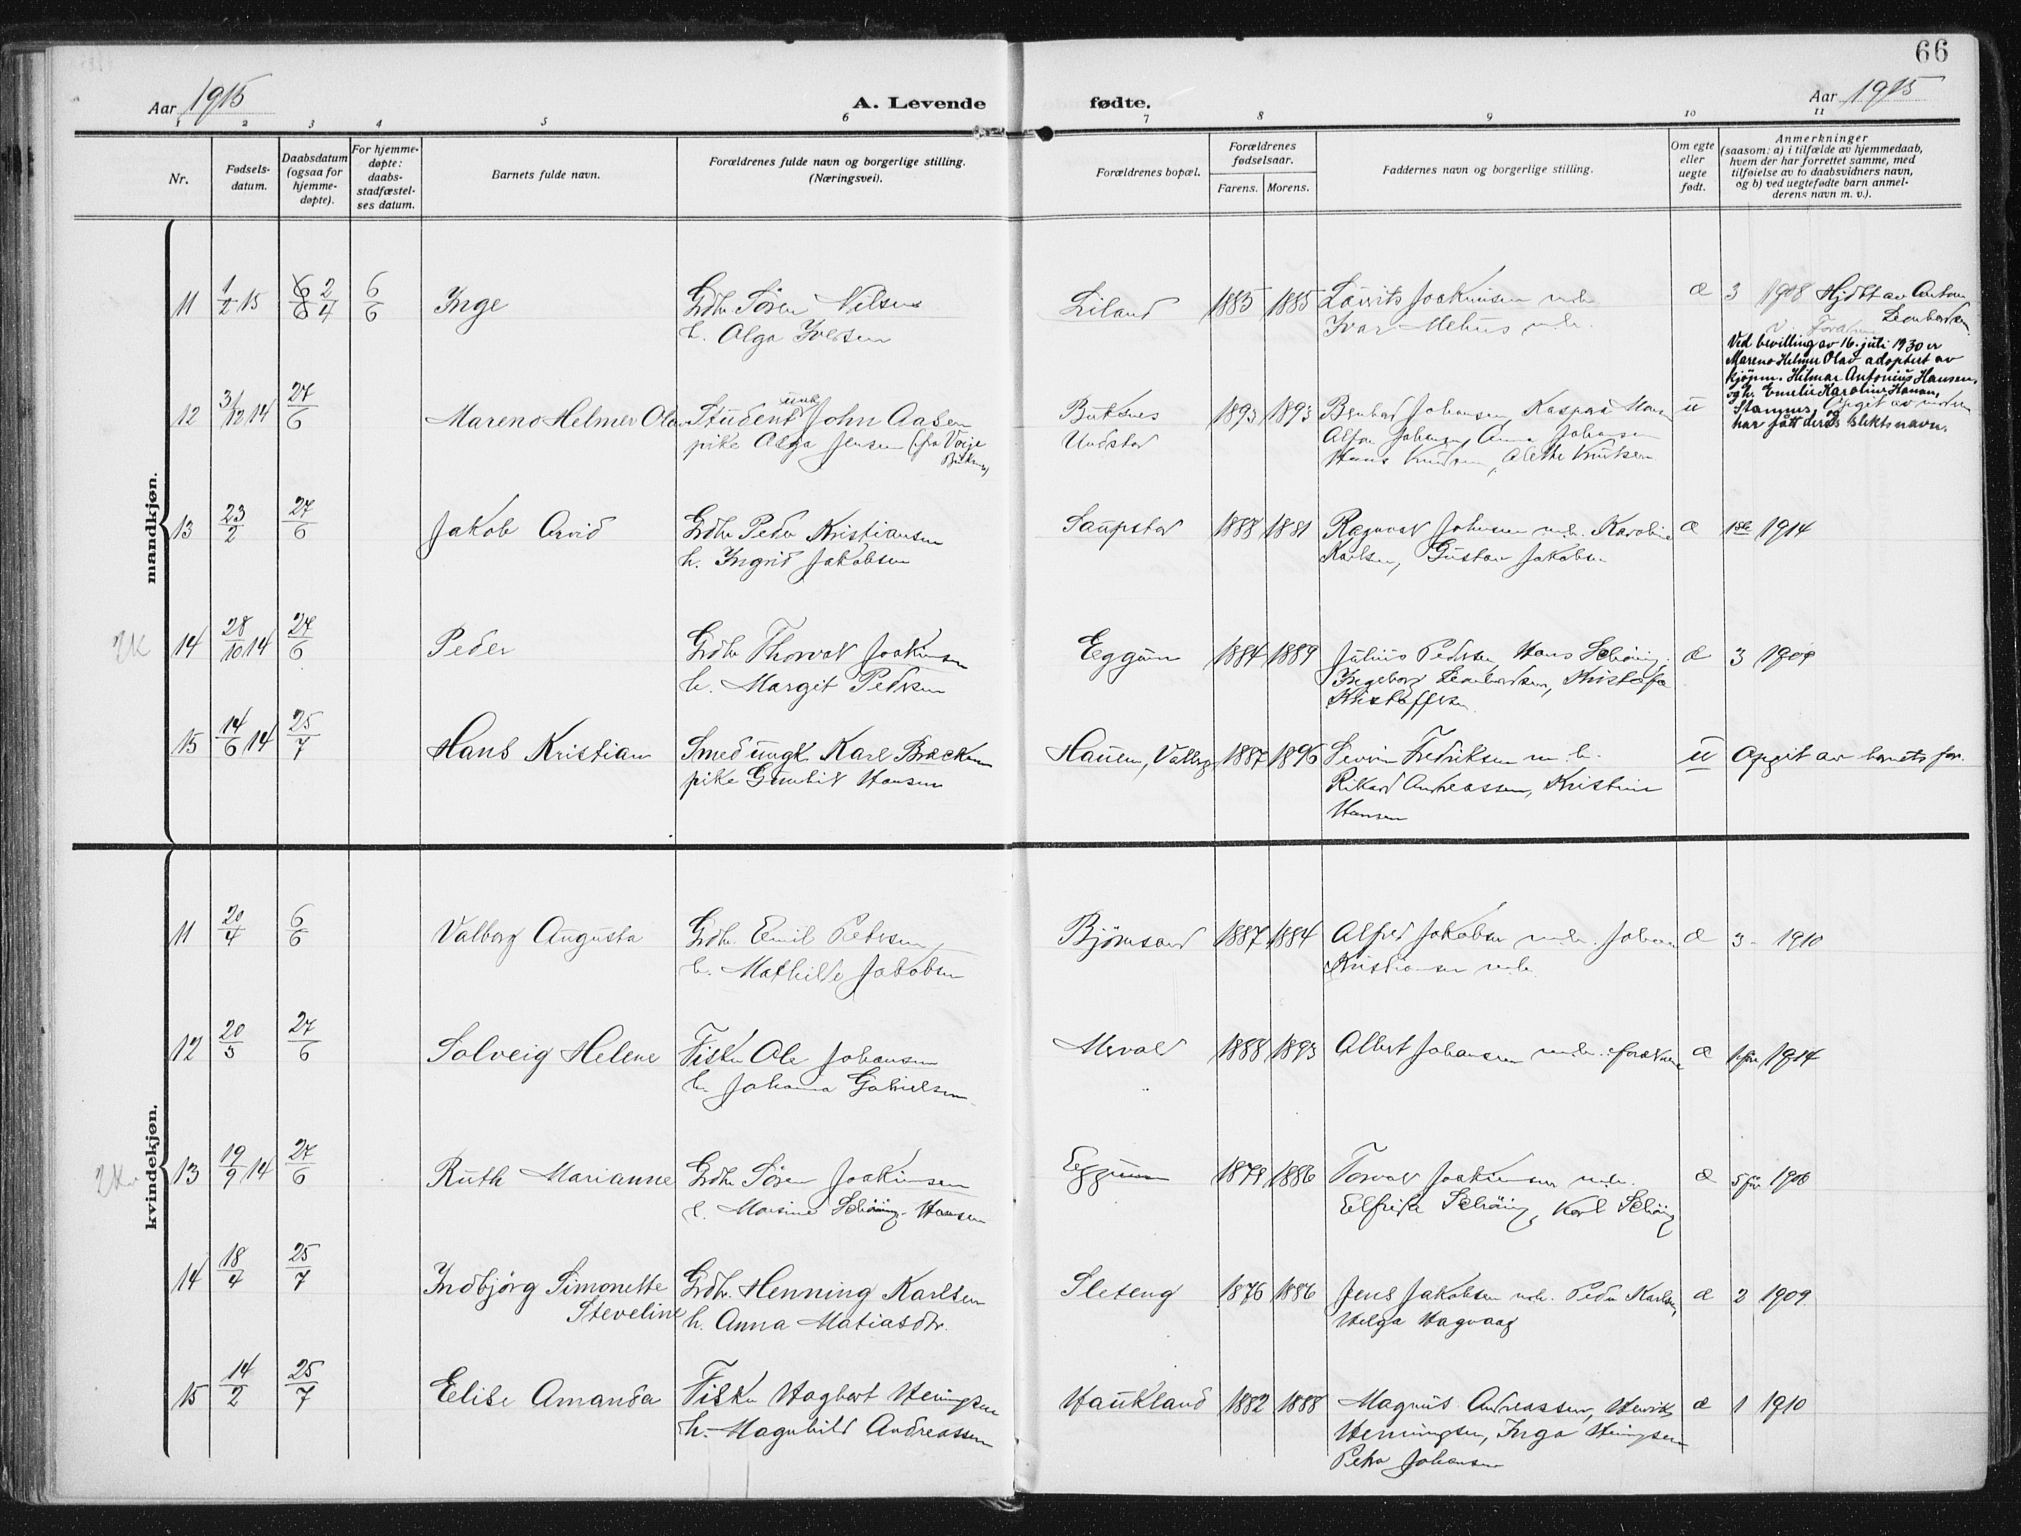 66
Aar 1915
A. Levende fødte.
Aar 1915
1 2 3 4 5 6 7 8 9 10 11
Nr.
Fødsels-
datum.
Daabsdatum
(ogsaa for
hjemme-
døpte).
For hjemme-
døpte:
daabs-
stadfæstel-
ses datum.
Barnets fulde navn.
Forældrenes fulde navn og borgerlige stilling.
(Næringsvei).
Forældrenes bopæl.
Forældrenes
fødselsaar.
Farens. Morens.
Faddernes navn og borgerlige stilling.
Om egte
eller
uegte
født.
Anmerkninger
(saasom: a) i tilfælde av hjemmedaab,
hvem der har forrettet samme, med
tilføielse av to daabsvidners navn,
og b) ved uegtefødte barn anmel-
derens navn m. v.).
mandkjøn.
11 1/2 15 2/4 6/6 Inge
Grdbr Sören Nilsen
h. Olga Iversen
Liland 1885 1885
Lavrits Joakimsen m.h.
Ivar Mehus m.h.
æ 3 1908 Hjdbt av Anton
Leonhardsen
12 31/12 14 27/6 Mareno Helmer Olav
Student ungk John Aasen
pike Olga Jensen (fra Voje
Buksnes)
Buksnes
Undstad
1893 1893
Bernhard Johansen, Kaspara
Johansen, Anna Johansen
Hans Knudsen, Knutsen
u
Ved bevilling av 16. juli 1930 er
Mareno Helmer Olav adoptert av
kjøpm. Hilmar Antonius Hansen,
og h. Emilie Karoline Hansen,
Stamnes, og Opgit av moren
har fått deres slektsnavn.
13 23/2 27/6 Jakob Arvid
Grdbr Peder Kristiansen
h. Ingrid Jakobsen
Saupstad 1888 1881
Ragnvat Johnsen m.h. Karoline
Karlsen, Gustav Jakobsen
æ 1ste 1914
2K 14 28/10 14 27/6 Peder
Grdbr Thorvat Joakimsen
h. Margit Pedersen
Eggum 1884 1889
Julius Pedersen Hans Schöning,
Ingeborg Leonhardsen,
Kristoffersen
æ 3 1909
15 14/6 14 25/7 Hans Kristian
Smed ungk. Karl
pike Gunhil Hansen
Hauen, Valberg 1887 1896
Sevrin Fredriksen m.h.
Rikard Andreassen, Kristine
Hansen
u Opgit av barnets far.
kvindekjøn.
11 20/4 6/6 Valborg Augusta
Grdbr. Emil Petersen,
h. Mathilde Jakobsen
Björnsand 1887 1884
Alfred Jakobsen m.h. Johan
Kristiansen m.h.
æ 3 - 1910
12 20/3 27/6 Solveig Helene
Fisker Ole Johansen
h. Johanna Gabrielsen
Mervold 1888 1893
Albert Johansen m.h. forældrene
æ 1. før 1914
13 19/9 14 27/6 Ruth Marianne
Grdbr Sören Joakimsen
h. Schöning-Hansen
Eggum 1879 1886
Torvat Joakimsen m.h.
Elfrida Schöning, Karl Schöning
æ 5 før 1906
14 18/4 25/7 Indbjörg Simonette
Steveline
Grdbr. Henning Karlsen
h. Anna Matiasdtr.
Sleteng 1876 1886
Jens Jakobsen m.h. Peder Karlsen,
Helga Hagvaag
æ 2 1909
15 14/2 25/7 Elise Amanda
Fisker Hagbart Henningsen
h. Magnhild Andreassen
Haukland 1882 1888
Magnus Andreassen, Henrik
Henningsen, Inga Henningsen
Petra Johansen
æ 1 1910